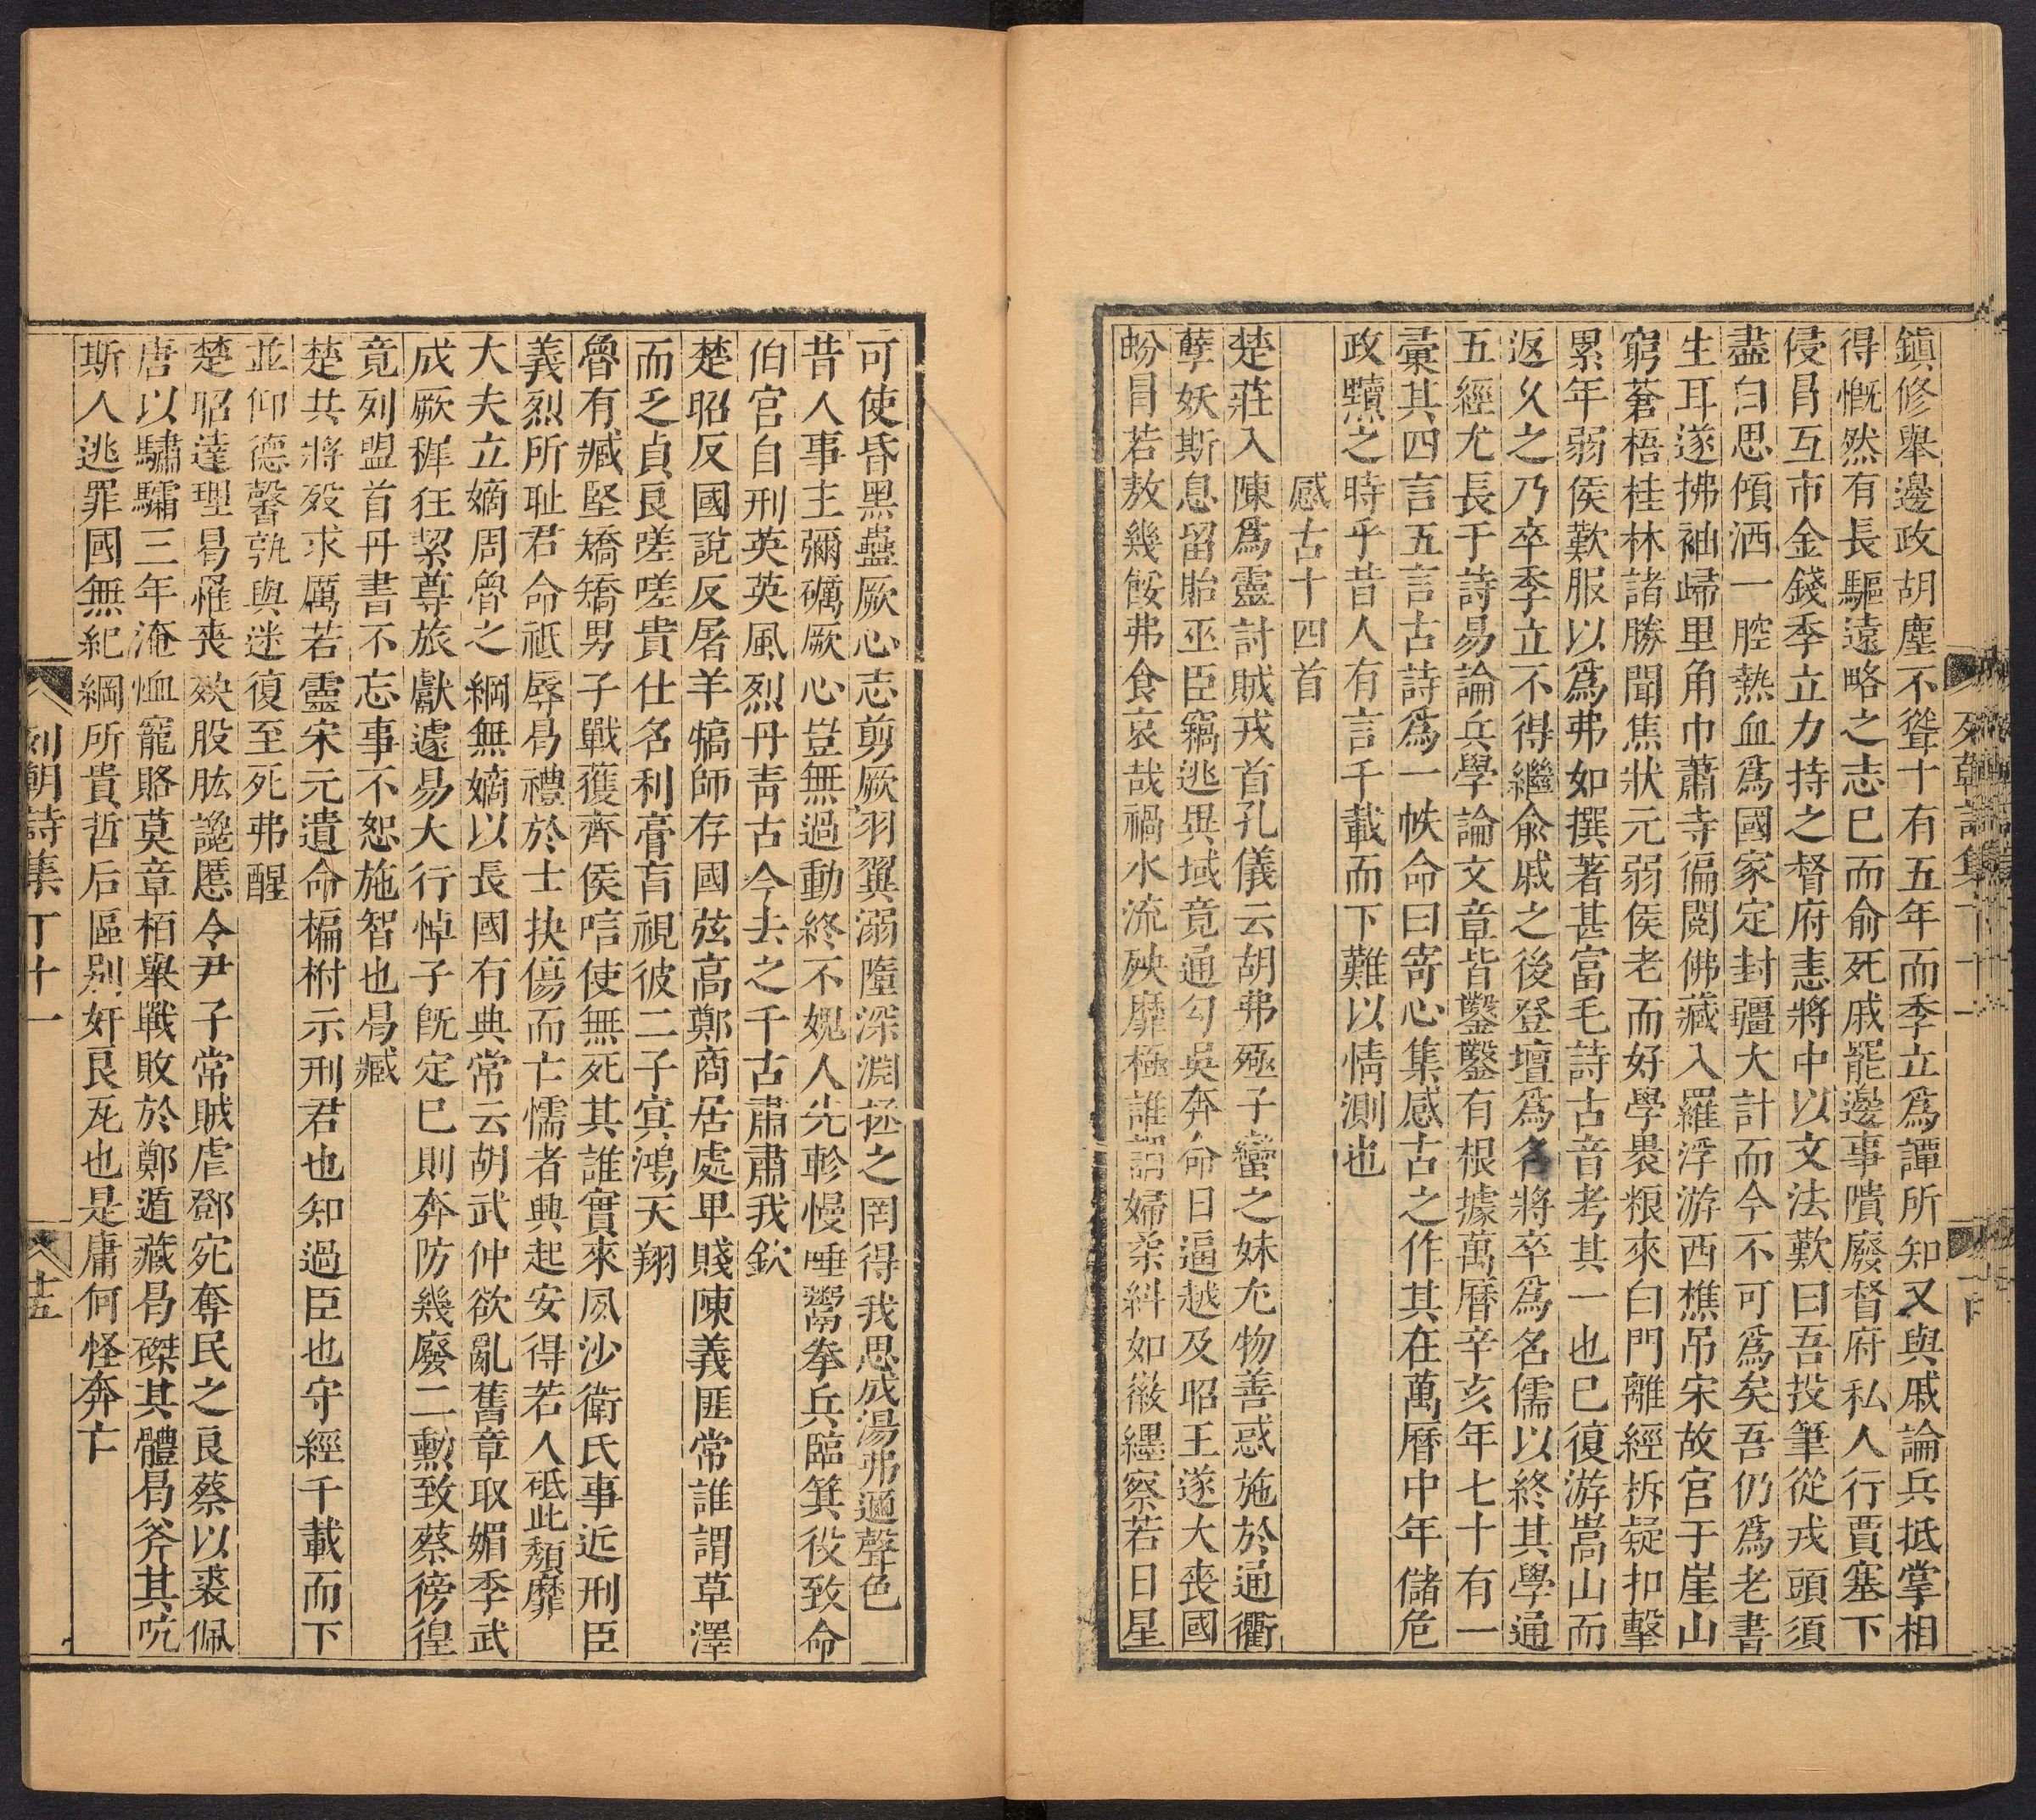 鎮修舉邊政胡塵不聳十有五年而季立爲譚所知又與戚論兵抵掌相
得慨然有長驅遠略之志已而俞死戚罷邊事隤廢督府私人行賈塞下
侵冐互市金錢季立力持之督府恚將中以文法歎曰吾投筆從戎頭須
盡白思傾洒一腔熱血爲國家定封疆大計而今不可爲矣吾仍爲老書
生耳遂拂袖歸里角巾蕭寺徧閱佛藏入羅浮游西樵吊宋故官于崖山
窮蒼梧桂林諸勝聞焦狀元弱侯老而好學褁粮來白門離經柝疑扣擊
累年弱侯歎服以爲弗如撰著甚富毛詩古音考其一也巳復游嵩山而
返乆之乃卒季立不得繼俞戚之後登壇爲名將卒爲名儒以終其學通
五經尤長于詩易論兵學論文章皆鑿鑿有根據萬曆辛亥年七十有一
彚其四言五言古詩爲一帙命曰寄心集感古之作其在萬曆中年儲危
政黷之時乎昔人有言千載而下難以情測也
感古十四首
楚莊入陳爲靈討賊戎首孔儀云胡弗殛子蠻之妹尤物善惑施於通衢
孽妖斯息留貽巫臣竊逃異域竟通勾吳奔命日逼越及昭王遂大喪國
蚡冒若敖幾餒弗食哀哉禍水流殃靡極誰謂婦柔糾如徽纆察若日星
可使昏黑蠱厥心志剪厥羽翼溺墮深淵拯之罔得我思成湯弗邇聲色
昔人事主彌礪厥心豈無過動終不媿人先軫慢唾鬻拳兵臨箕役致命
伯官自刑英英風烈丹青古今去之千古肅肅我欽
楚昭反國說反屠羊犒師存國弦高鄭商居處卑賤陳義匪常誰謂草澤
而乏貞良嗟嗟貴仕名利膏肓視彼二子寅鴻天翔
魯有臧堅矯矯男子戰獲齊侯唁使無死其誰實來夙沙衛氏事近刑臣
義烈所耻君命祇辱曷禮於士抉傷而亡懦者興起安得若人砥此頹靡
大夫立嫡周魯之綱無嫡以長國有典常云胡武仲欲亂舊章取媚季武
成厥穉狂絜尊旅獻遽易大行悼子既定已則奔防幾廢二勳致蔡徬徨
竟列盟首丹書不忘事不恕施智也曷臧
楚共將殁求厲若靈宋元遺命楄柎示刑君也知過臣也守經千載而下
並仰德馨孰與迷復至死弗醒
楚昭達理曷罹喪殃股肱讒慝令尹子常賊虐鄧宛奪民之良蔡以裘佩
唐以驌驦三年淹恤寵賂莫章栢舉戰敗於鄭遁藏曷磔其體曷斧其吭
斯人逃罪國無紀綱所貴哲后區别奸良瓦也是庸何怪奔亡
列朝詩集丁十一
十五